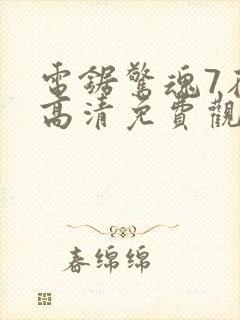 電鋸驚魂7在
高清免費觀
春綿綿